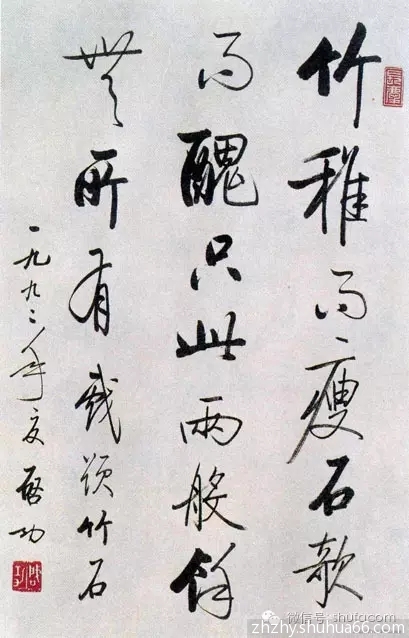 竹稚而瘦石欹
而醜只此兩般餘
無所有戲題竹石
一九九二年夏 啓功
微信号: shufacom
zhzhy.shuhua66.com